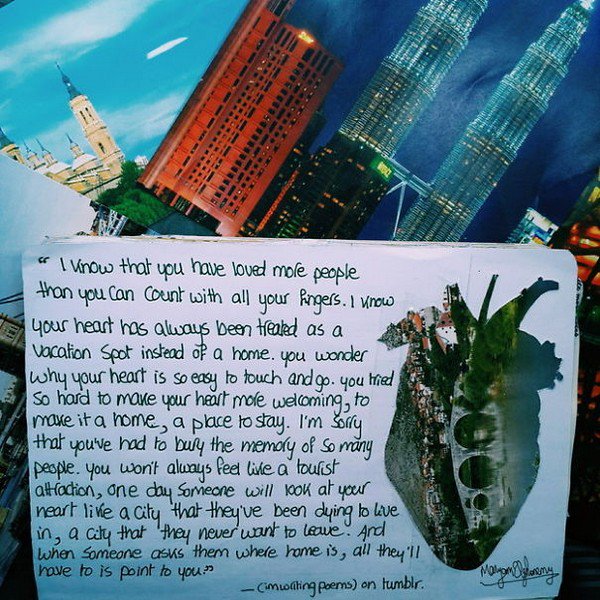 " I know that you have loved more people
than you can count with all your fingers. I know
your heart has always been treated as a
vacation spot instead of a home. you wonder
why your heart is so easy to touch and go. you tried
so hard to make your heart more welcoming, to
make it a home, a place to stay. I'm sorry
that you've had to bury the memory of so many
people. you won't always feel like a tourist
attraction, one day someone will look at your
heart like a city that they've been dying to live
in, a city that they never want to leave. And
when someone asks them where home is, all they'll
have to is point to you."
— (imwritingpoems) on tumblr.